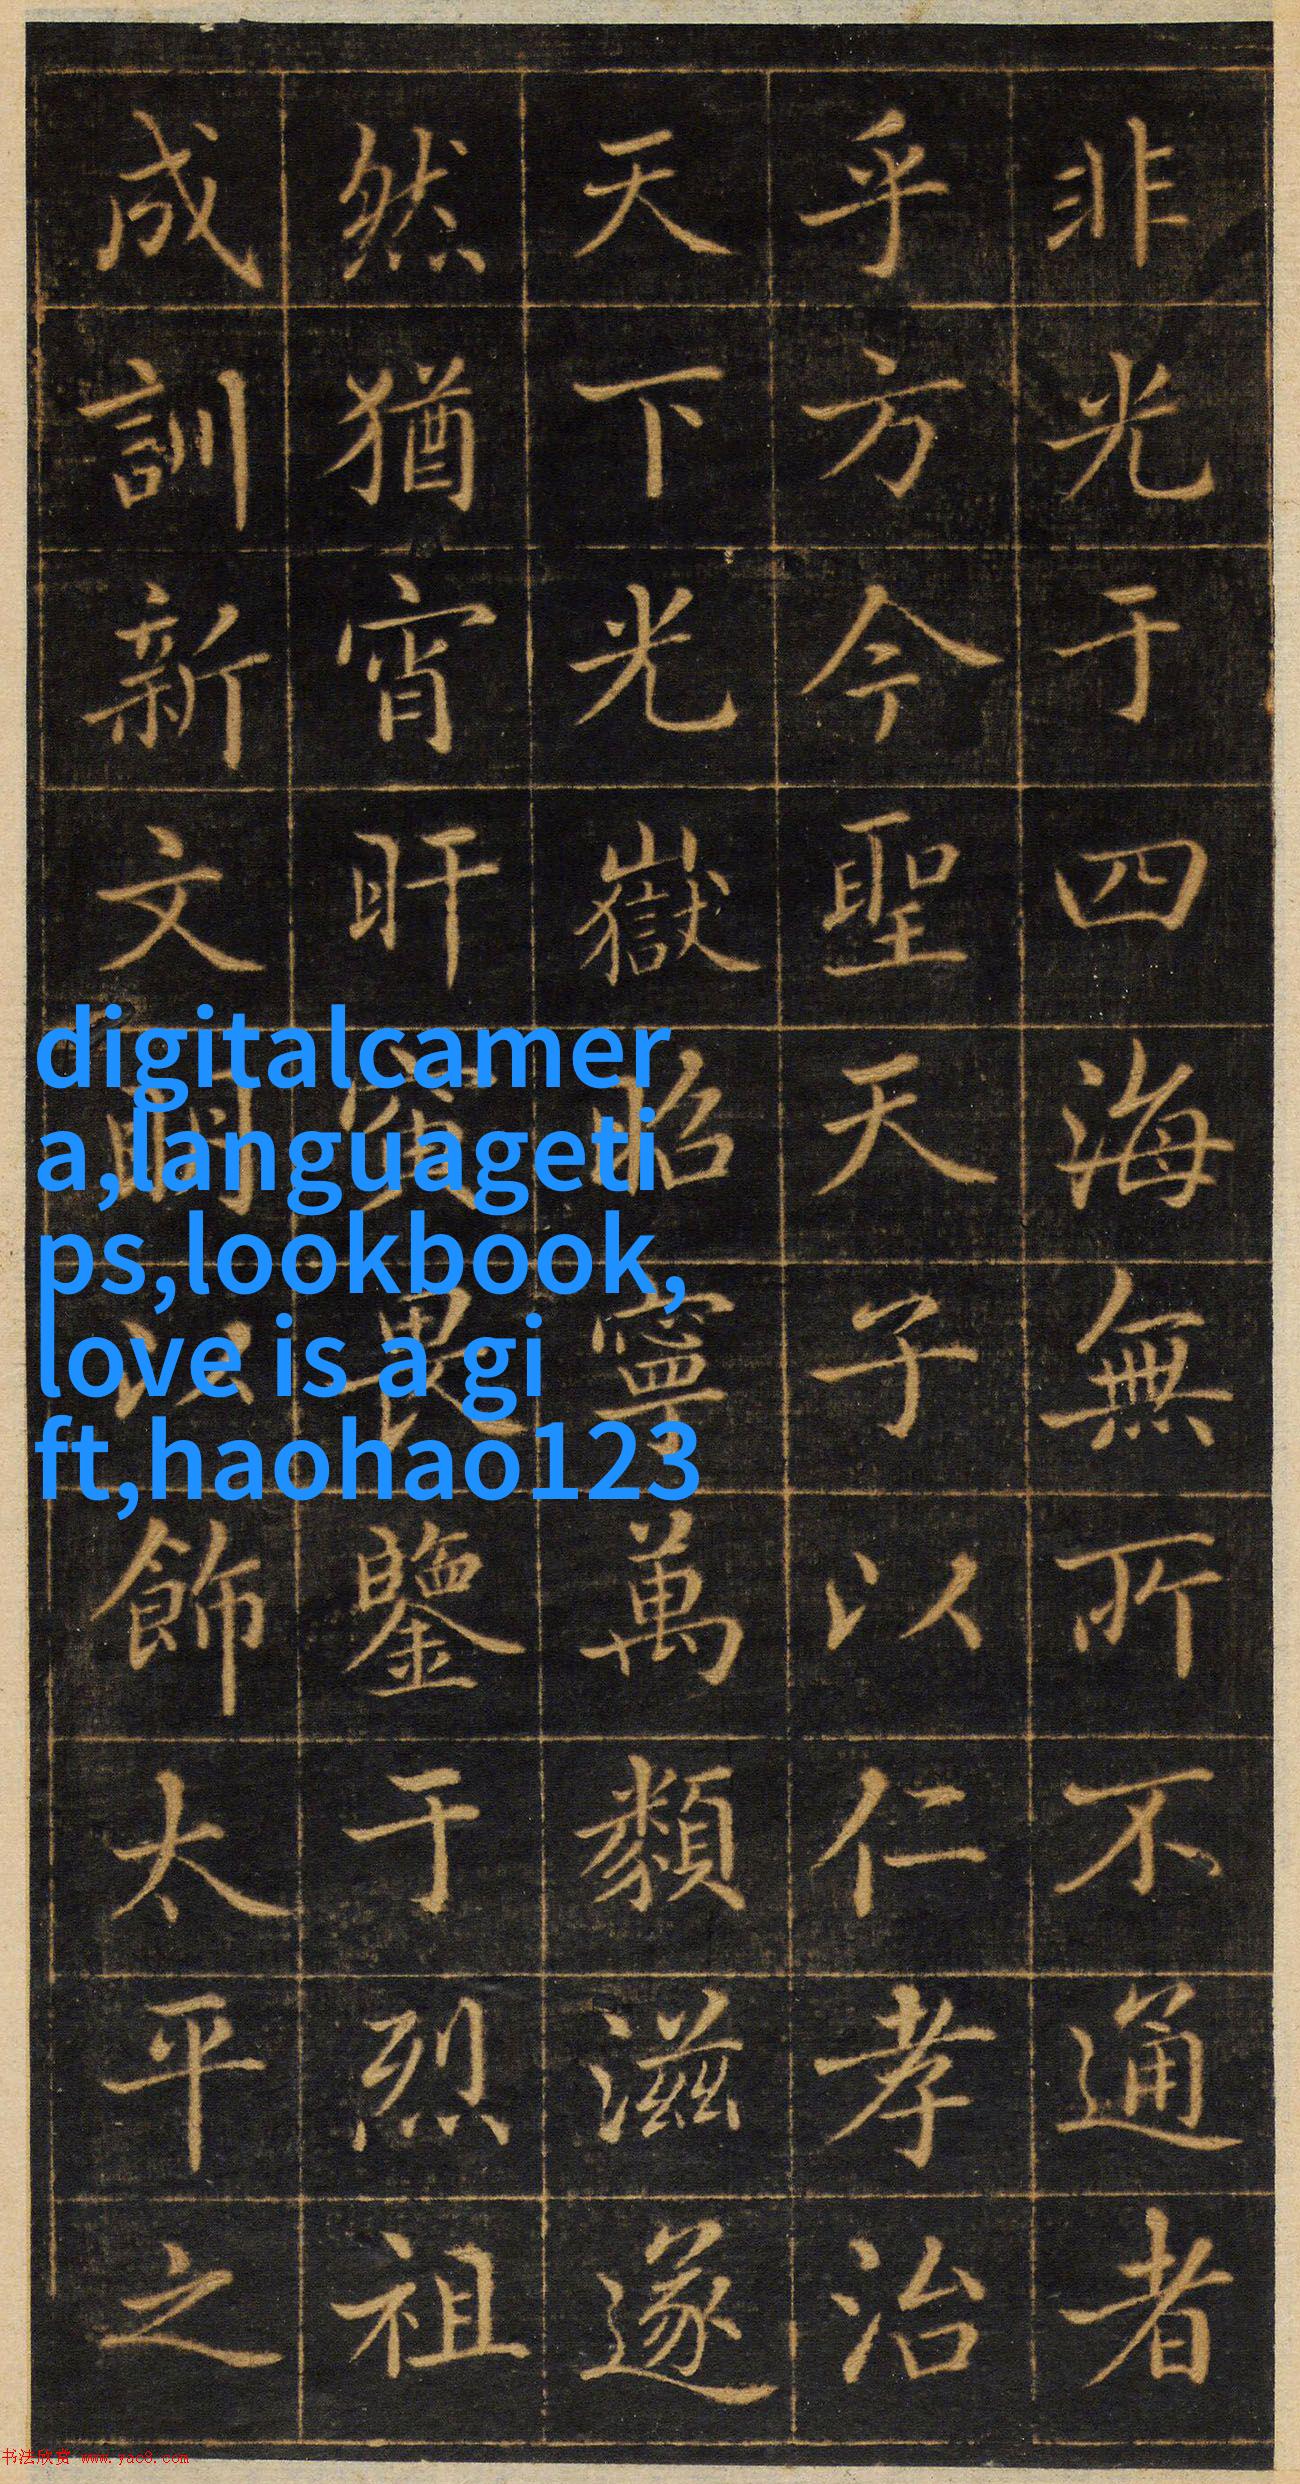 非光于四海無所不通者
乎方今聖天子以仁孝治
天下光嶽昭寧萬類滋遂
然猶宵旰寅畏鑒于烈祖
成訓新文以飾太平之
digitalcamer
a,languageti
ps,lookbook,
love is a gi
ft,haohao123
书法欣赏 www.yac8.com